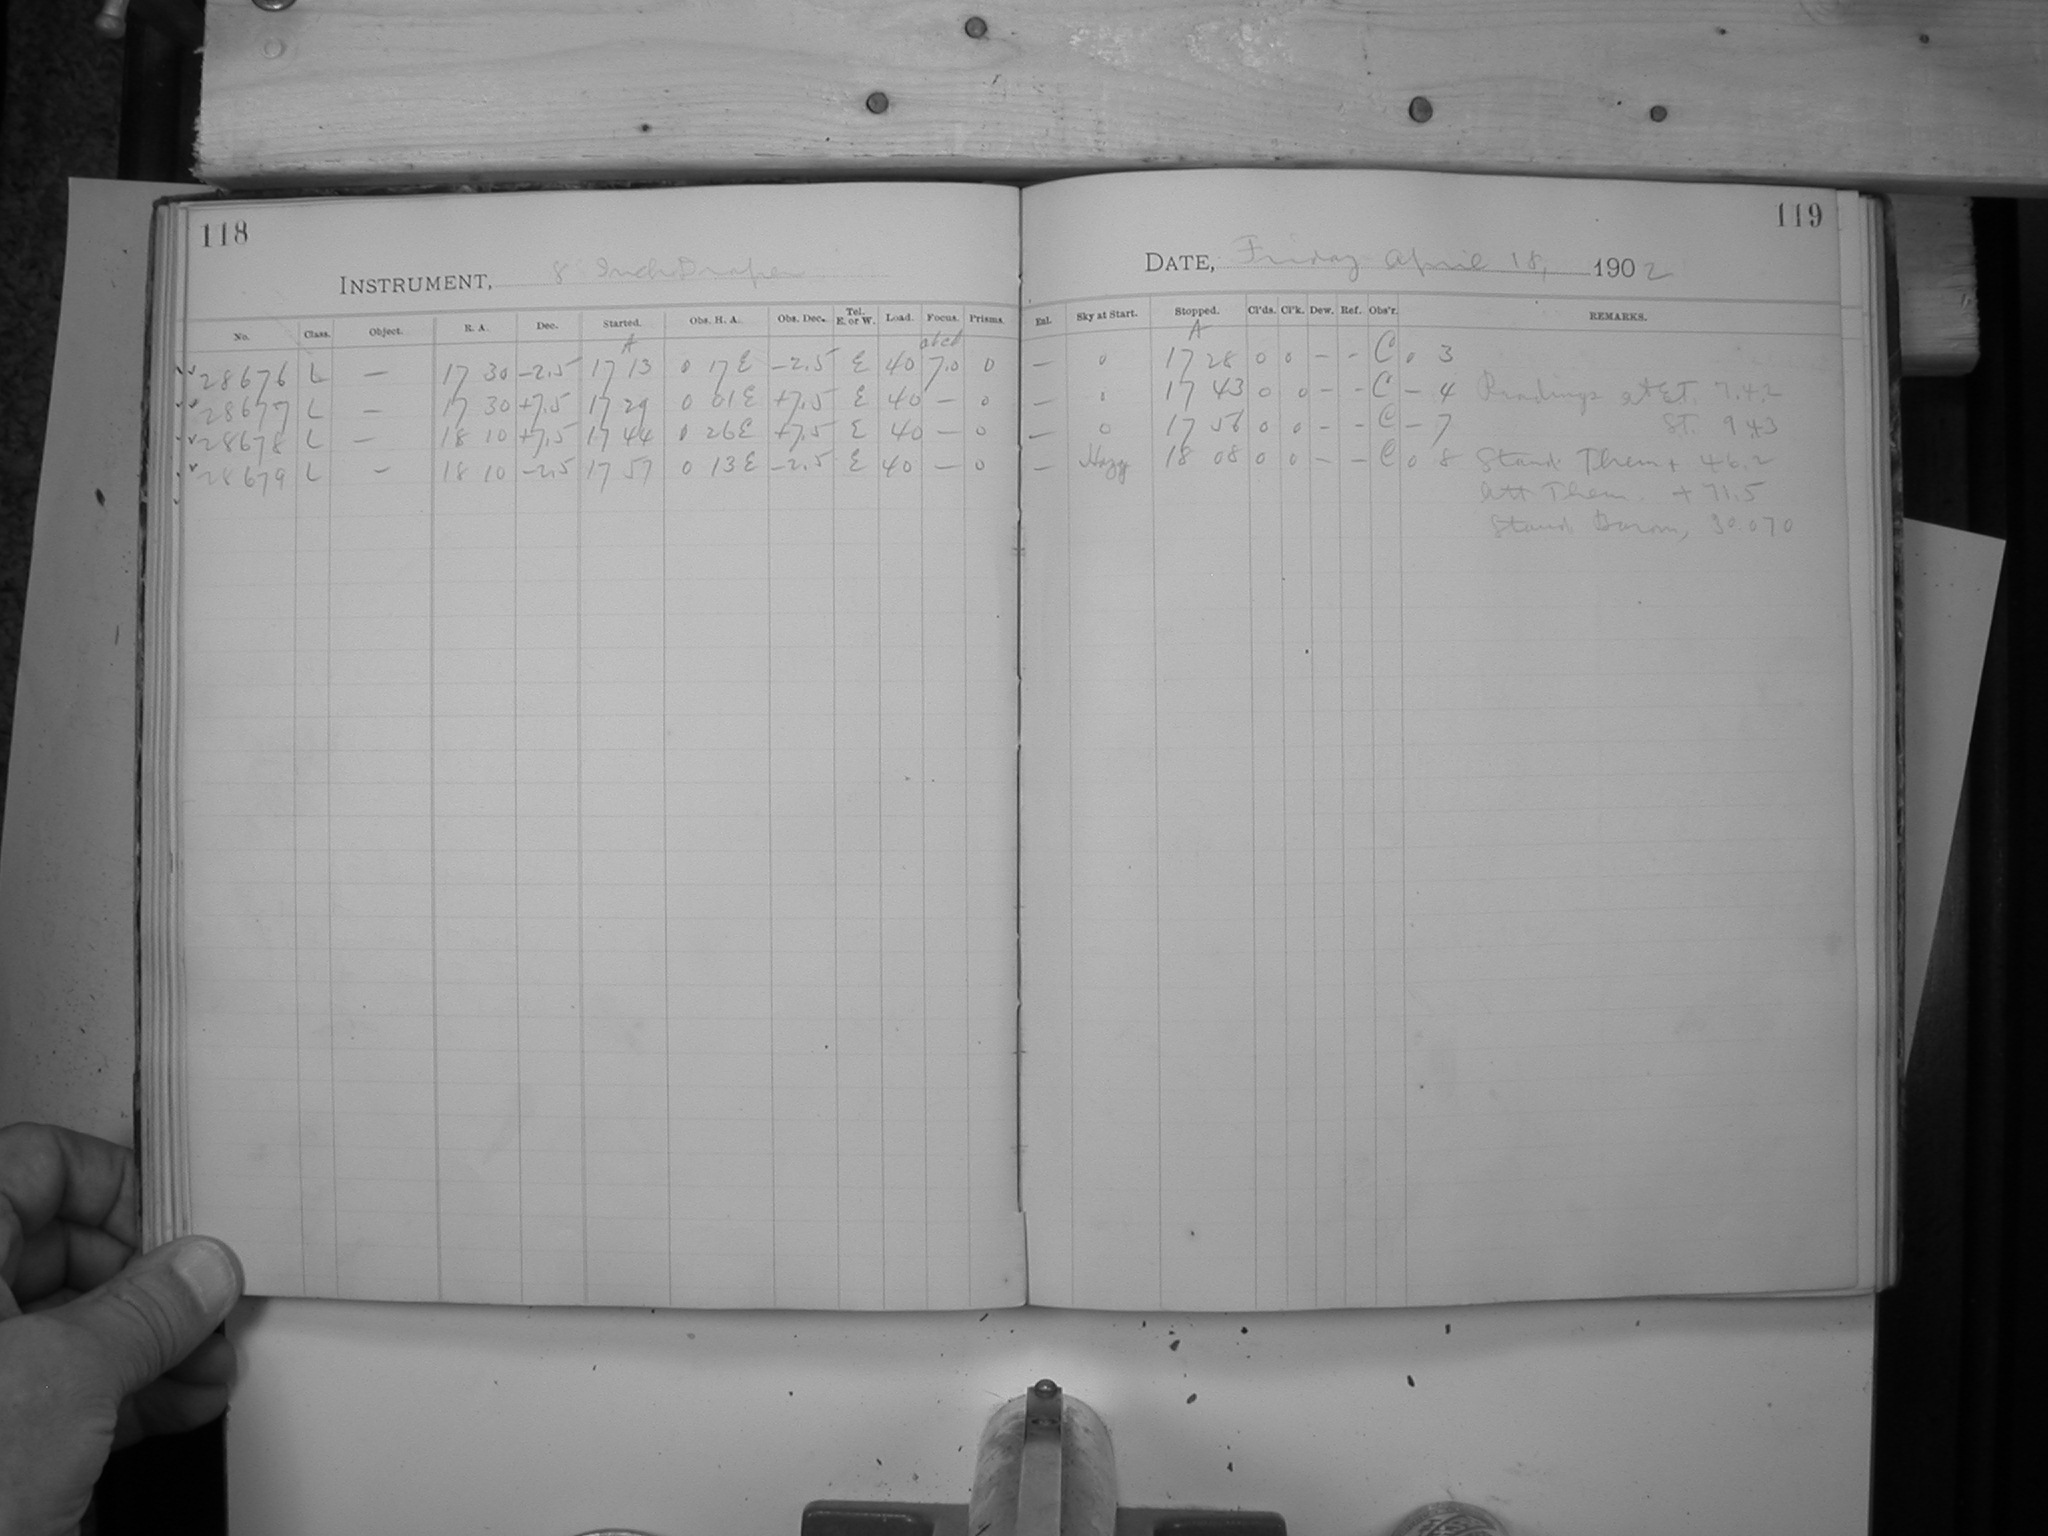 118
INSTRUMENT, 8 Inch Draper
No. Class. Object. R. A. Dec. Started. Obs. H. A. Obs. Dec. Tel. E. or W. Load. Focus. Prisms.
A
28676 L — 17 30 -2.5 17 13 0 17 E -2.5 E 40 7.0 0
28677 L — 17 30 +7.5 17 29 0 01 E +7.5 E 40 — 0
28678 L — 18 10 +7.5 17 44 0 26 E +7.5 E 40 — 0
28679 L — 18 10 -2.5 17 57 0 13 E -2.5 E 40 — 0
119
DATE, Friday April 18, 1902
Exl. Sky at Start. Stopped. Cl'ds. Cl'k. Dew. Ref. Obs'r. REMARKS.
A
— 0 17 28 0 0 - - C 0 3
— 17 43 0 0 - - C - 4 Readings at ET. 7.42
— 0 17 56 0 0 - - C - 7 ST. 9 43
— Hazy 18 08 0 0 - - C 0 8 Stand Them + 46.2
Att Them. + 71.5
Stand Barom, 30.070